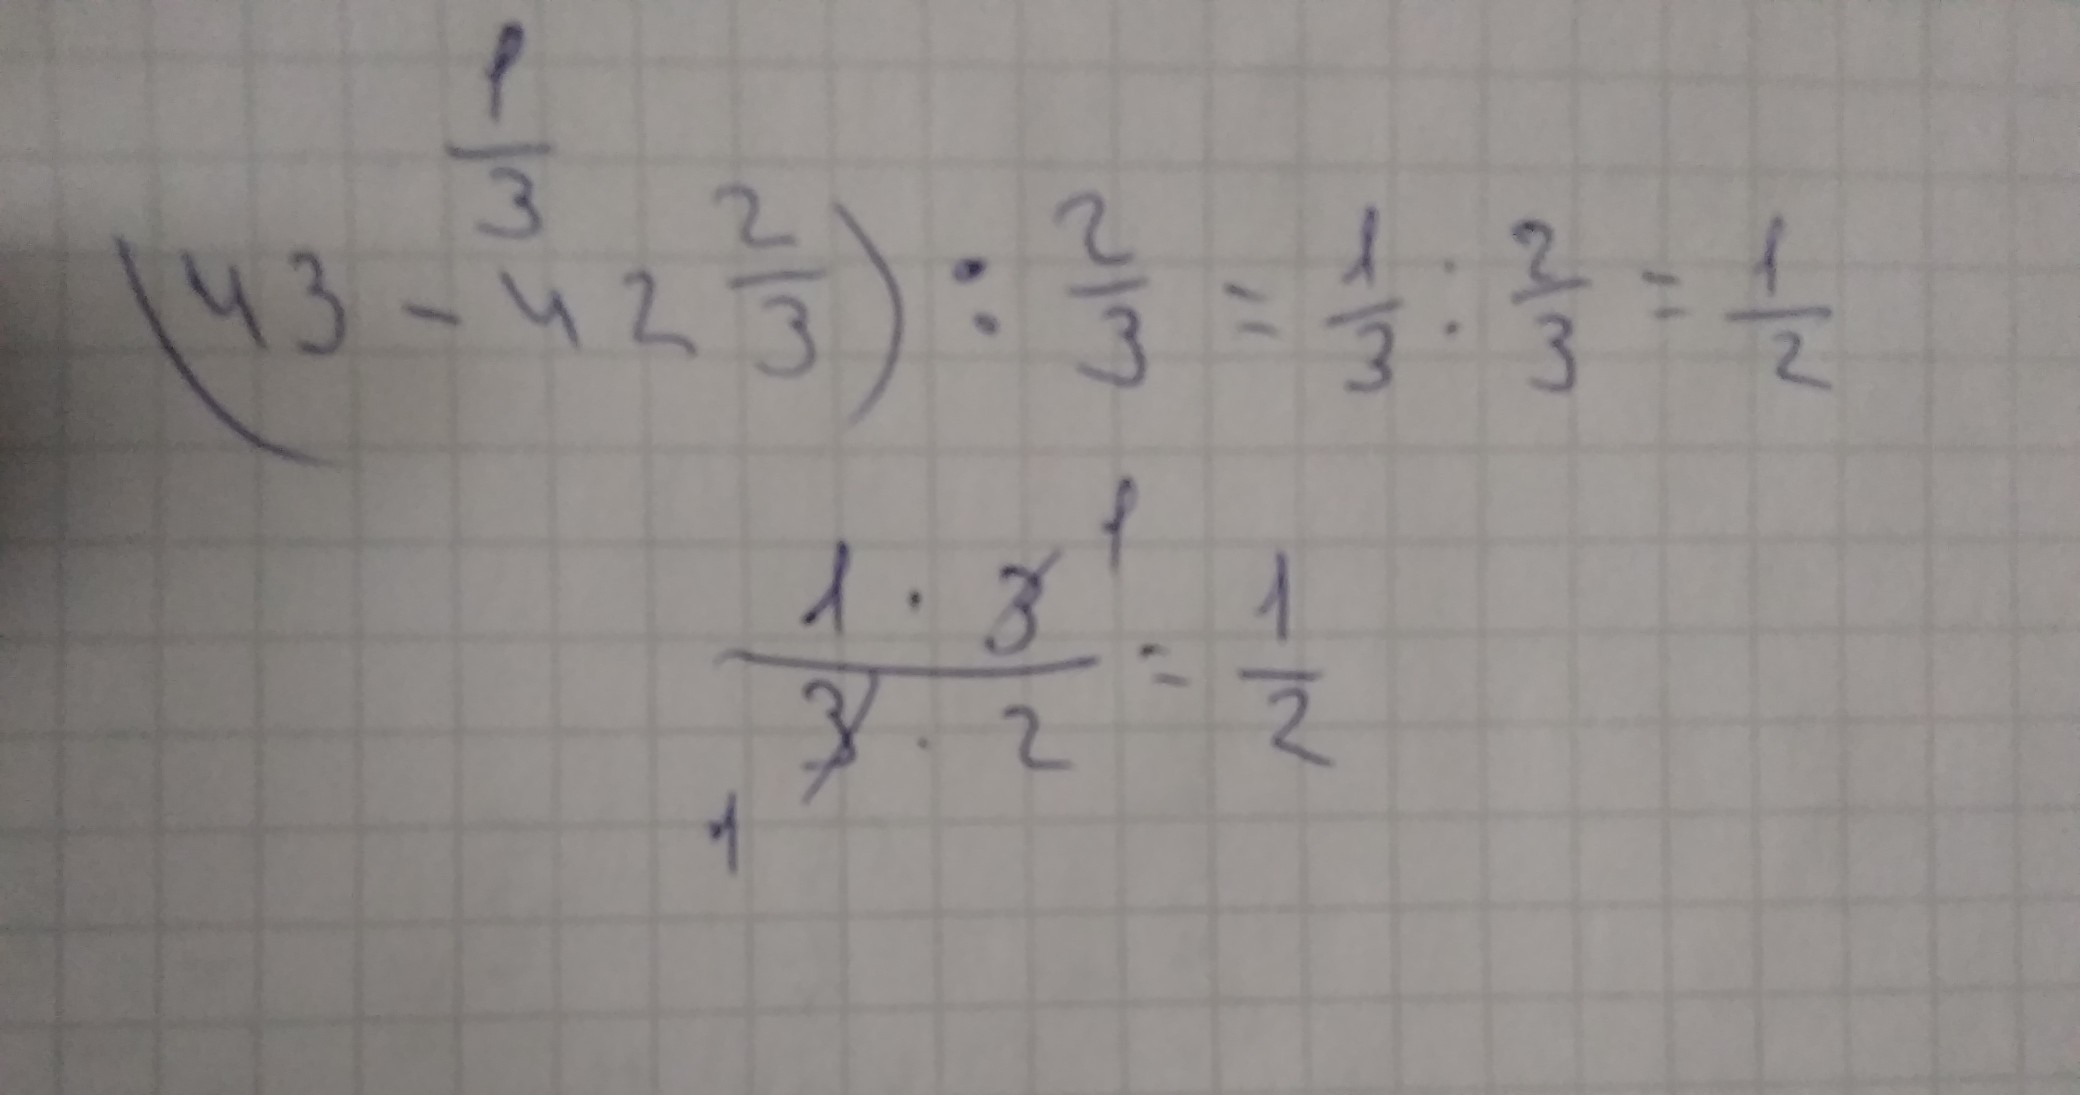 1/3
(43 - 42 2/3) : 2/3 = 1/3 : 2/3 = 1/2
1 · 3 1 / 3 · 2 = 1/2
1